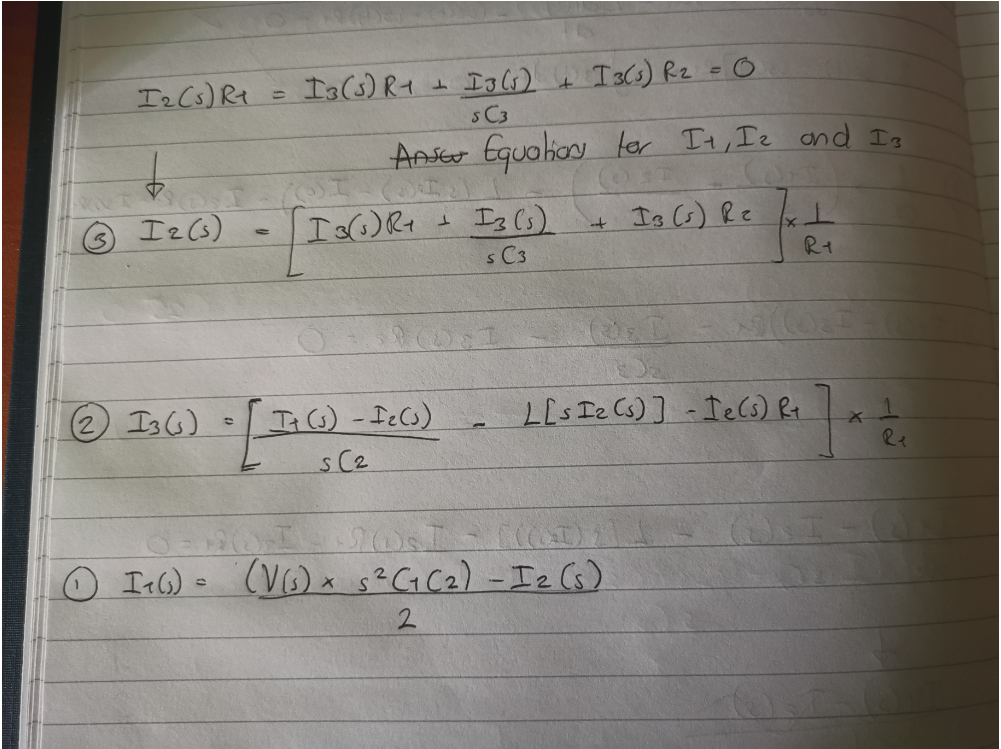 I2(s)R1 = I3(s)R1 + I3(s)/sC3 + I3(s)R2 = 0
Equation for I1, I2 and I3
↓
③ I2(s) = [I3(s)R1 + I3(s)/sC3 + I3(s)R2] × 1/R1
② I3(s) = [I1(s) - I2(s)/sC2 - L[sI2(s)] - I2(s)R1] × 1/R1
① I1(s) = (V(s) × s²C1C2) - I2(s)/2